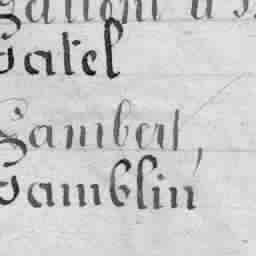 Gatel
Gambert,
Gamblin